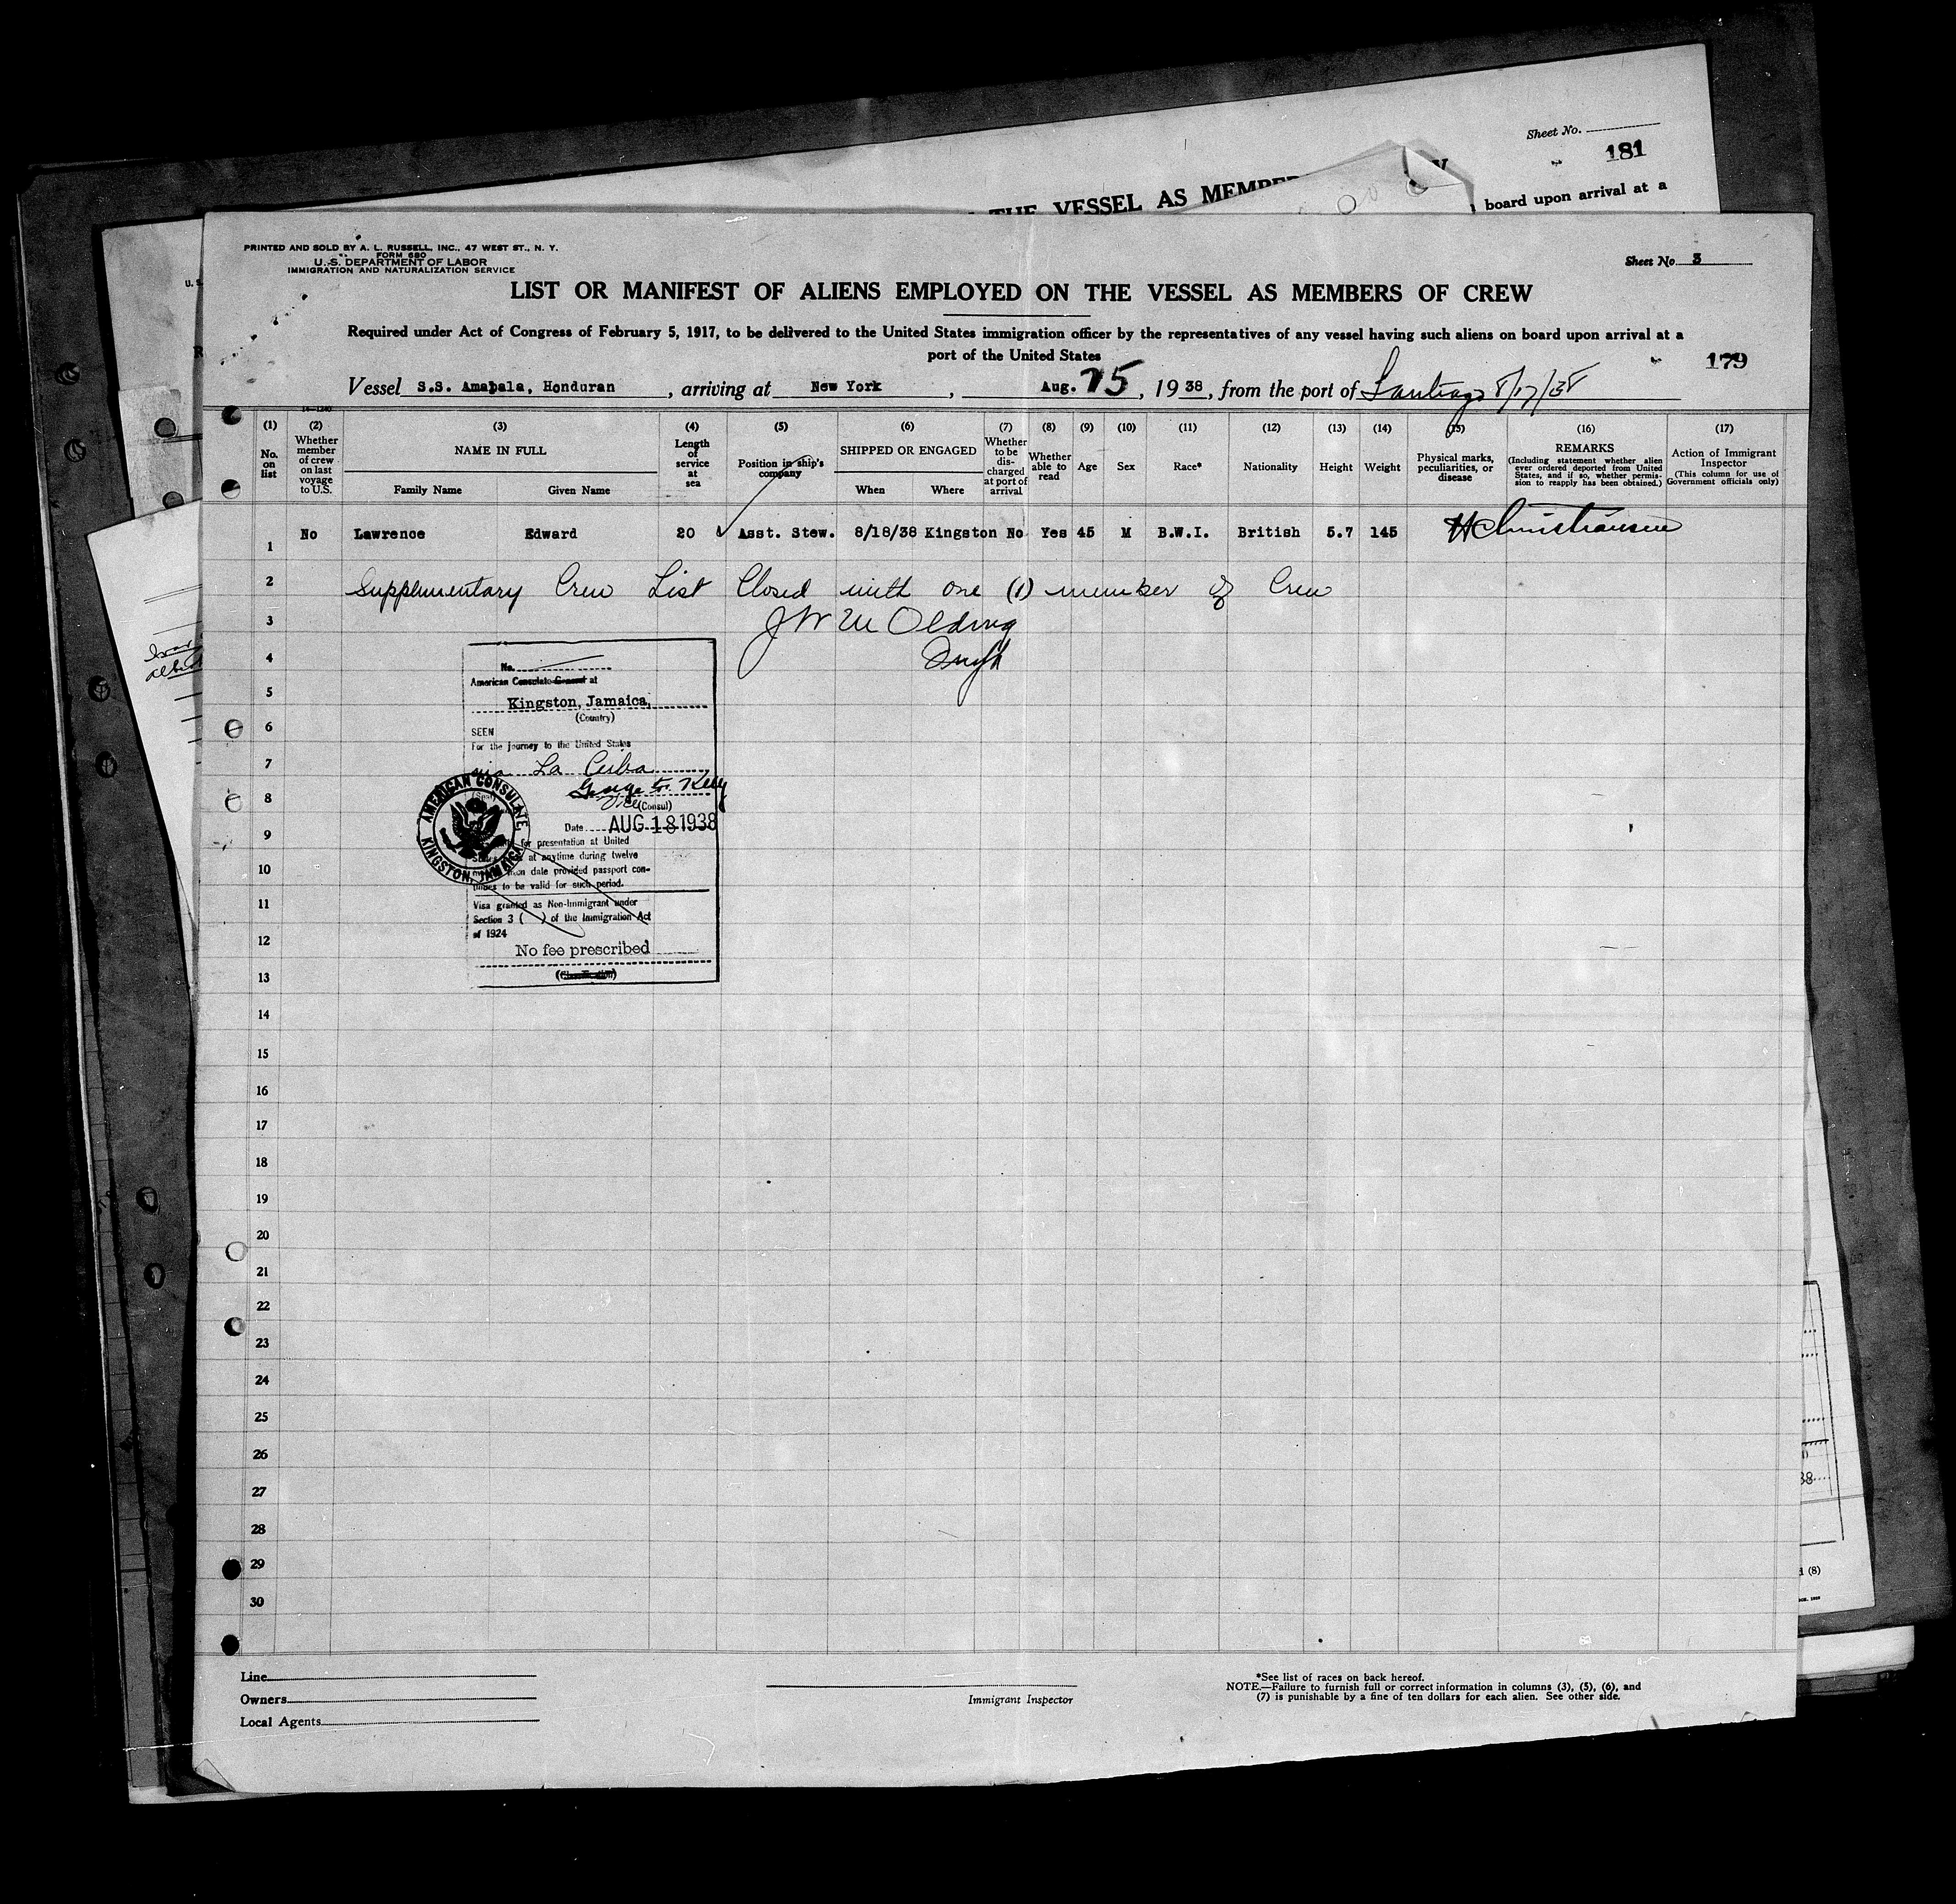 Sheet No.
181
THE VESSEL AS MEMBER
board upon arrival at a
PRINTED AND SOLD BY A. L. RUSSELL, INC., 47 WEST ST., N. Y.
FORM 680
U. S. DEPARTMENT OF LABOR
IMMIGRATION AND NATURALIZATION SERVICE
Sheet No 3
LIST OR MANIFEST OF ALIENS EMPLOYED ON THE VESSEL AS MEMBERS OF CREW
Required under Act of Congress of February 5, 1917, to be delivered to the United States immigration officer by the representatives of any vessel having such aliens on board upon arrival at a
port of the United States
179
Vessel S.S. Amapala, Honduran, arriving at New York, Aug. 25, 1938, from the port of Santiago 8/17/38
14—1240
(1) (2) (3) (4) (5) (6) (7) (8) (9) (10) (11) (12) (13) (14) (15) (16) (17)
No. on list
Whether member of crew on last voyage to U.S.
NAME IN FULL
Family Name Given Name
Length of service at sea
Position in ship's company
SHIPPED OR ENGAGED
When Where
Whether to be discharged at port of arrival
Whether able to read
Age
Sex
Race*
Nationality
Height
Weight
Physical marks, peculiarities, or disease
REMARKS
(Including statement whether alien ever ordered deported from United States, and if so, whether permission to reapply has been obtained.)
Action of Immigrant Inspector
(This column for use of Government officials only)
1 No Lawrence Edward 20 Asst. Stew. 8/18/38 Kingston No Yes 45 M B.W.I. British 5.7 145 H Christiansen
2 Supplementary Crew List Closed with one (1) member of Crew
3
4
5
6
7
8
9
10
11
12
13
14
15
16
17
18
19
20
21
22
23
24
25
26
27
28
29
30
No.
American Consulate General at
Kingston, Jamaica,
(Country)
SEEN
For the journey to the United States
via La Ceiba
Vice (Consul)
Date AUG 18 1938
for presentation at United
at anytime during twelve
date provided passport con-
tinues to be valid for such period.
Visa granted as Non-Immigrant under
Section 3 ( ) of the Immigration Act
of 1924
No fee prescribed
(Classification)
AMERICAN CONSULATE,
KINGSTON, JAMAICA
Line
Owners
Local Agents
Immigrant Inspector
*See list of races on back hereof.
NOTE.—Failure to furnish full or correct information in columns (3), (5), (6), and
(7) is punishable by a fine of ten dollars for each alien. See other side.